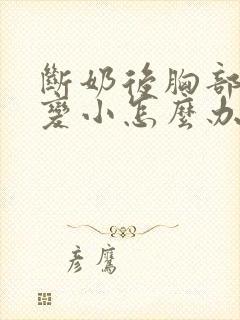 斷奶後胸部
變小怎麼办
彥鷹